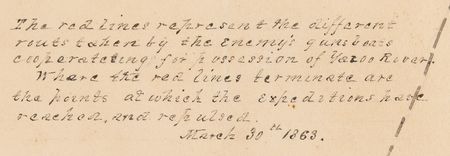 The red lines represent the different
routs taken by the Enemy's gunboats
cooperateting for possession of Yazoo River.
Where the red lines terminate are
the points at which the expeditions have
reached, and repulsed.
March 30th 1863.